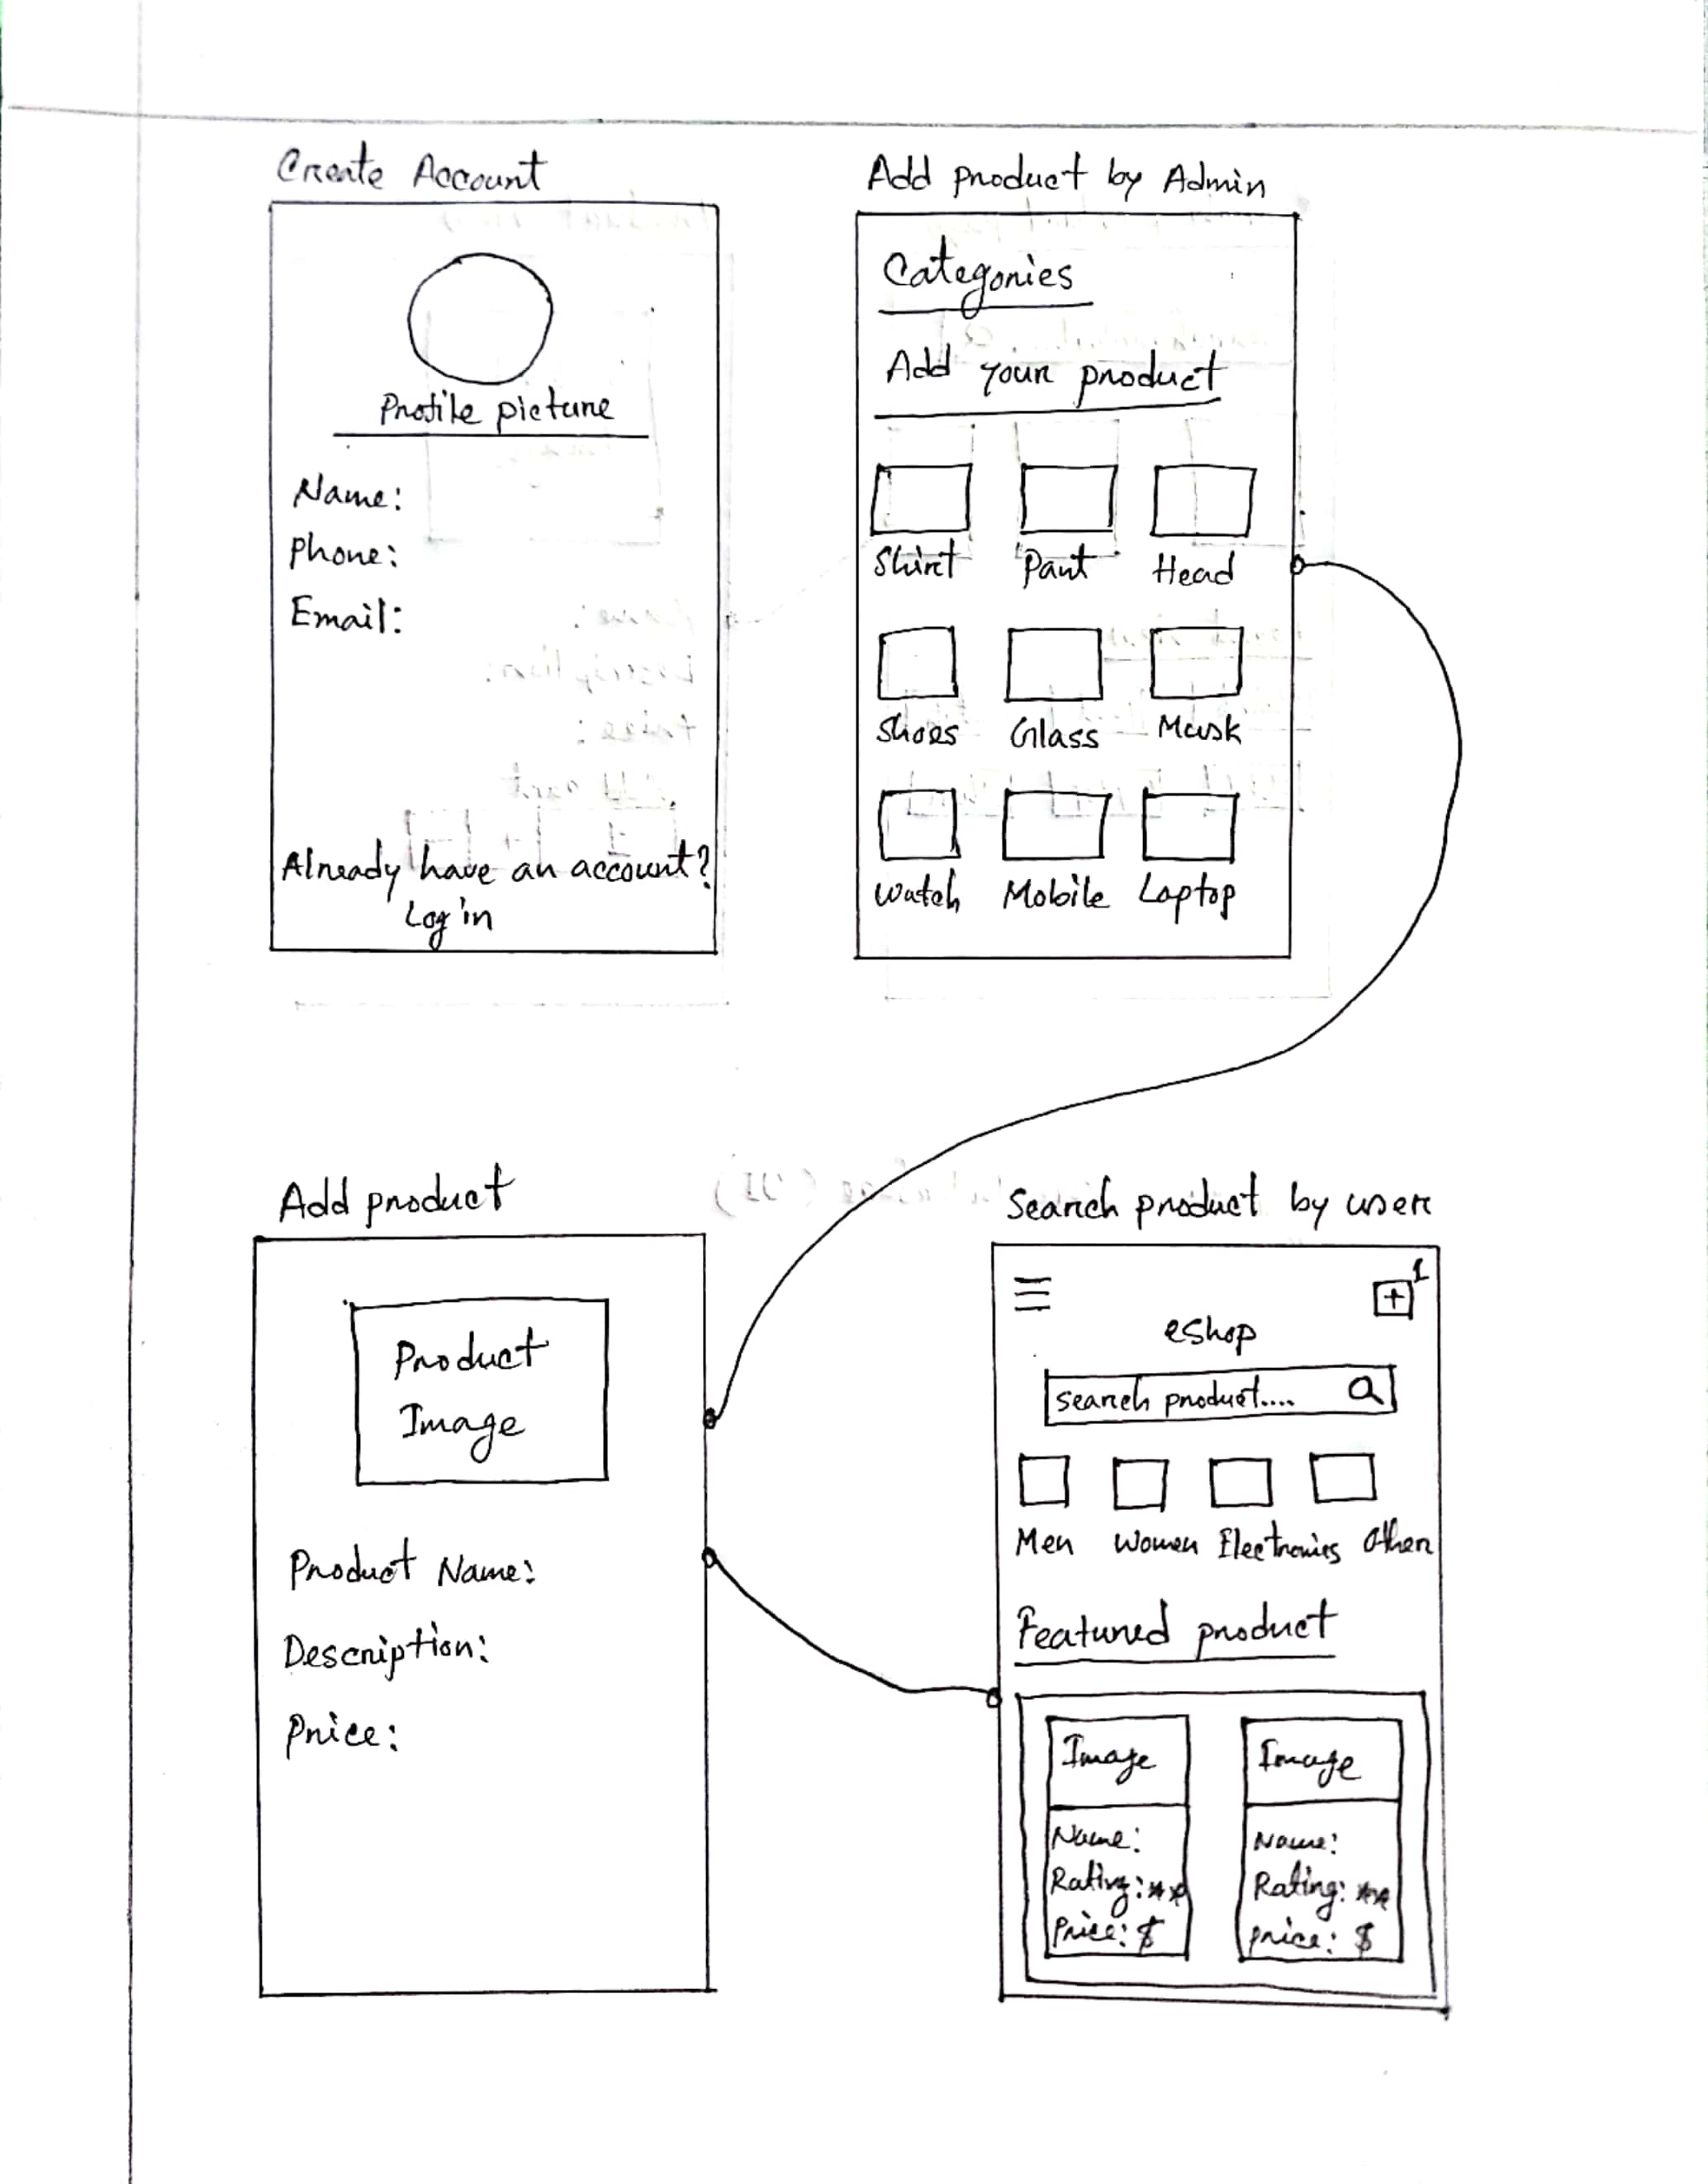 Create Account
Profile picture
Name:
Phone:
Email:
Already have an account?
Log in
Add product by Admin
Categories
Add your product
Shirt Pant Head
Shoes Glass Mask
Watch Mobile Laptop
Add product
Product
Image
Product Name:
Description:
Price:
Search product by user
1
+
eshop
search product....
Men Women Electronics Other
Featured product
Image
Name:
Rating: **
Price: $
Image
Name:
Rating: **
price: $